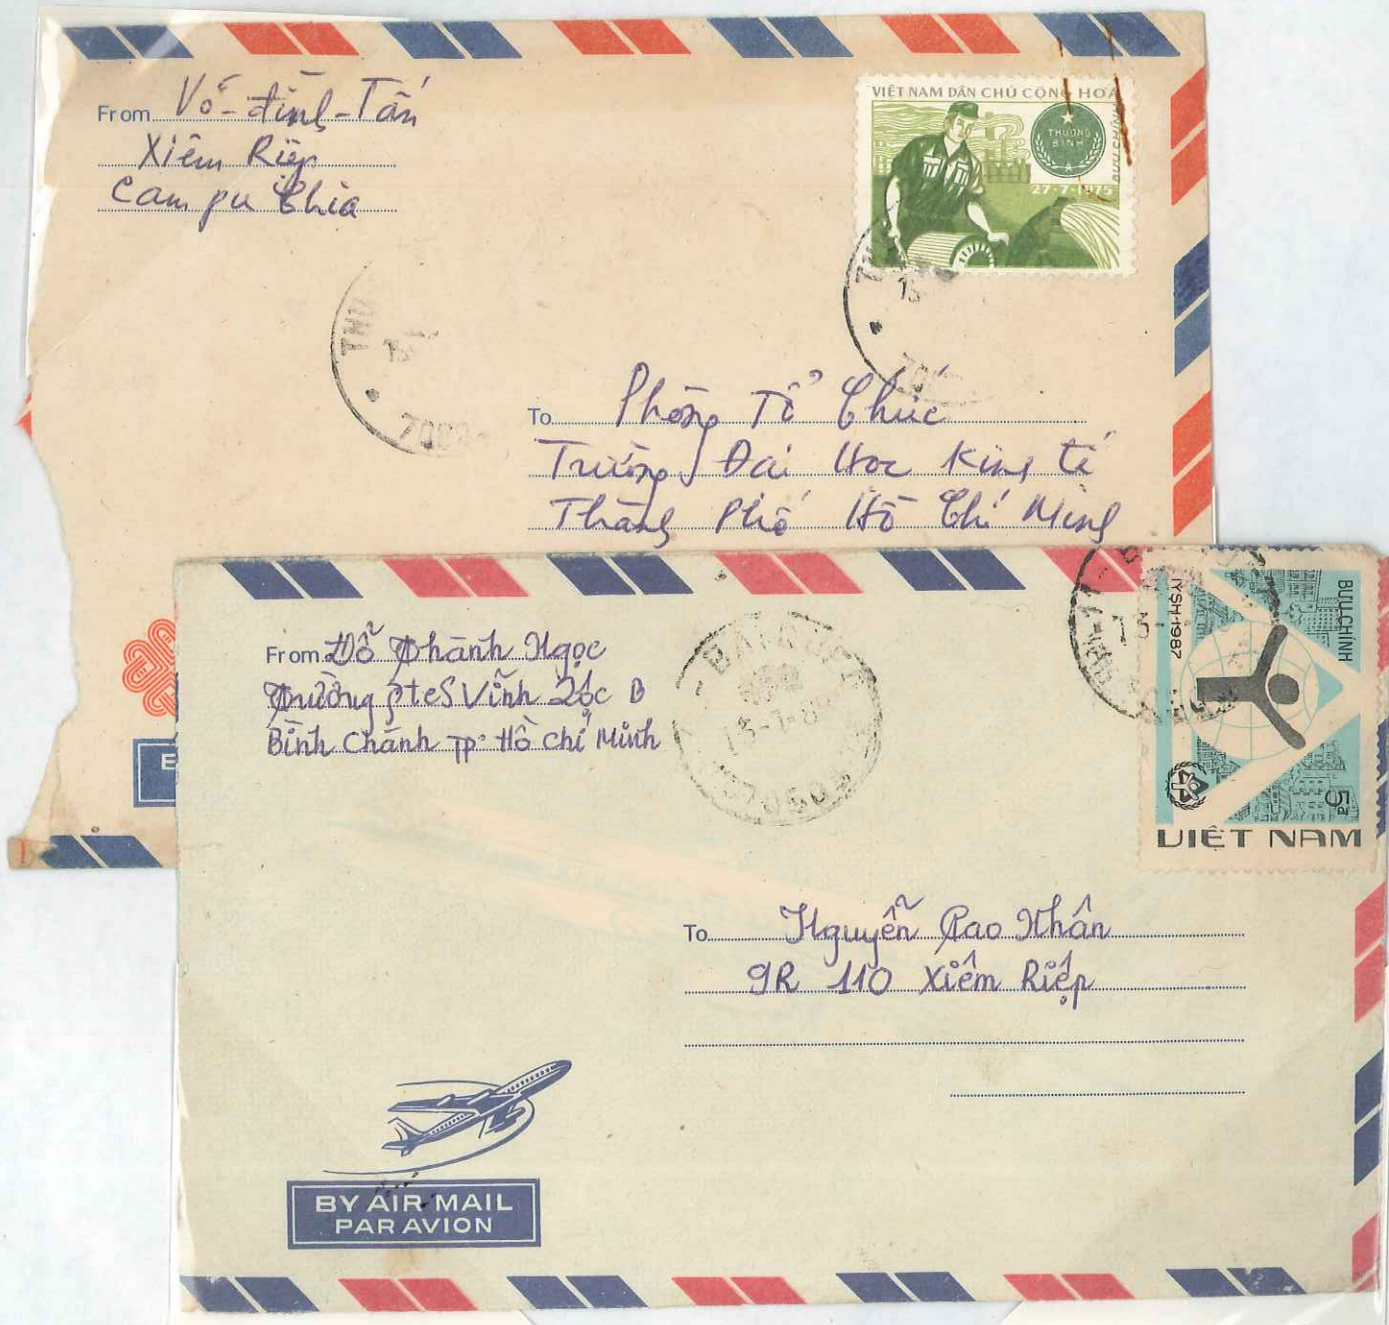 From Võ-đình-Tấn
Xiêm Riệp
Cam pu Chia
VIỆT NAM DÂN CHỦ CỘNG HOÀ
THƯƠNG
BINH
BƯU CHÍNH
27-7-1975
THU
13
7000
To Phòng Tổ Chức
Trường Đại Học Kinh tế
Thành Phố Hồ Chí Minh
From Đỗ Thành Ngọc
Trường ptcs Vĩnh Lộc B
Bình Chánh TP Hồ Chí Minh
13-7-8
70
IYSH-1987
BƯU CHÍNH
5đ
VIỆT NAM
To Nguyễn Cao Nhân
9R 110 Xiêm Riệp
BY AIR MAIL
PAR AVION